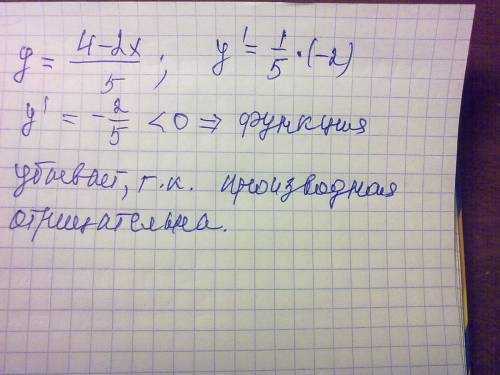 y = (4-2x)/5; y' = 1/5 · (-2)
y' = -2/5 < 0 ⇒ функция
убывает, т.к. производная
отрицательна.